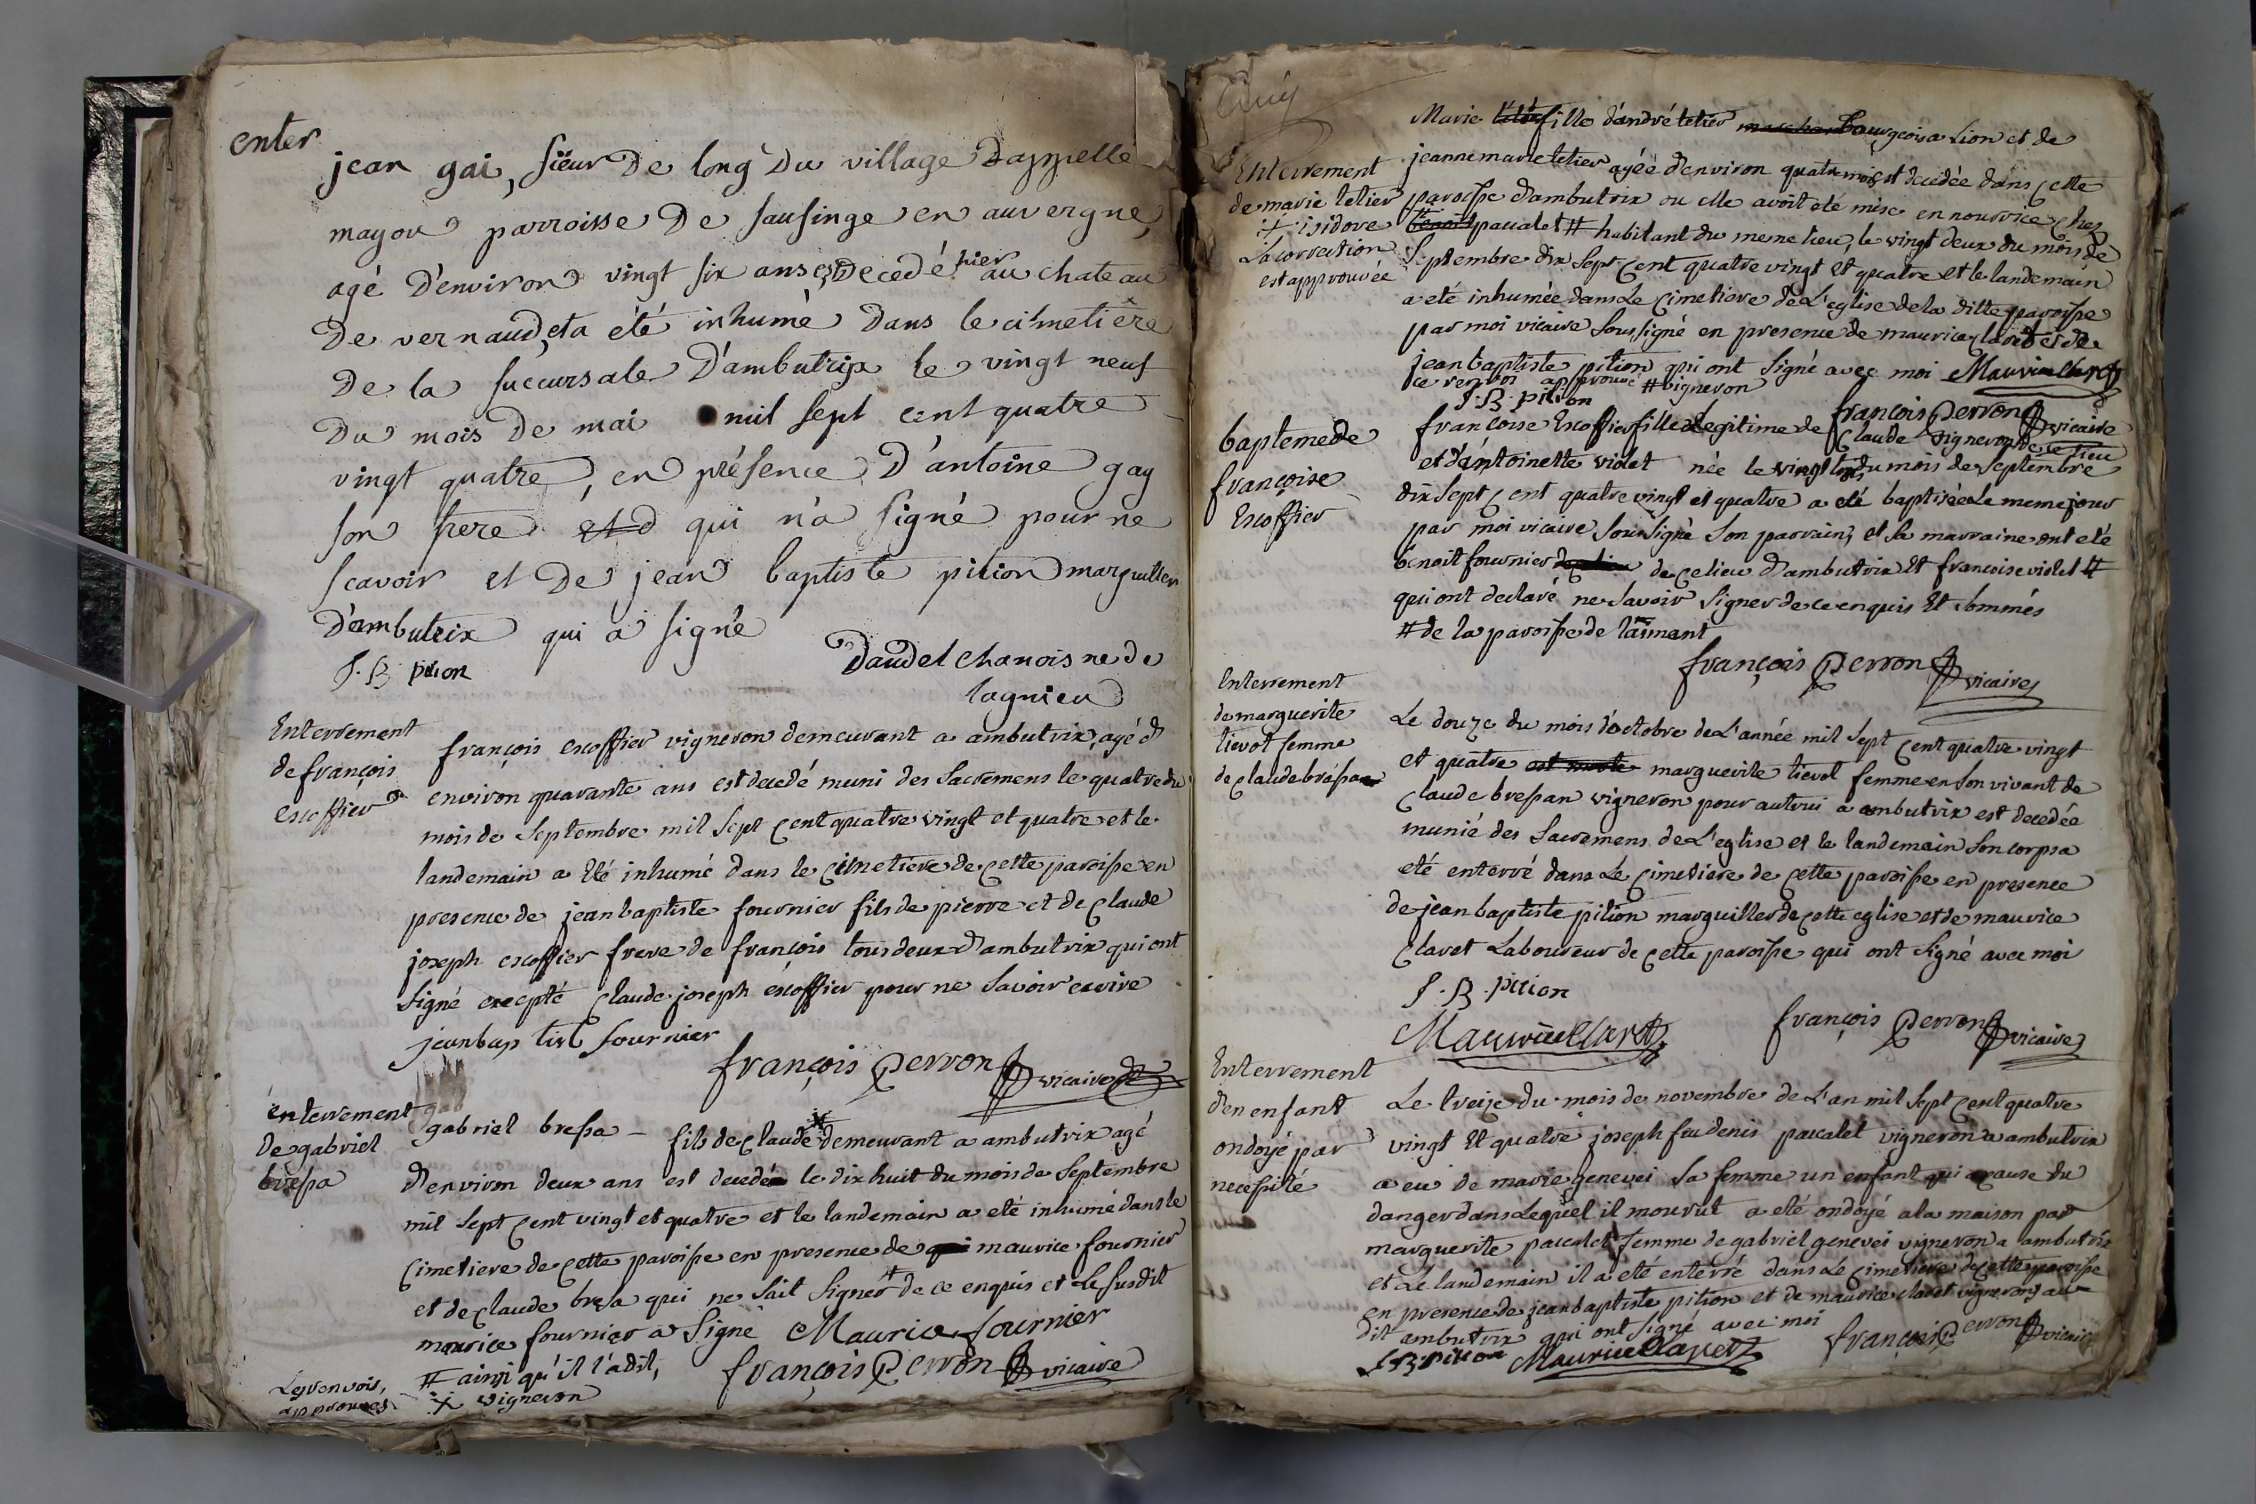 enter
jean gai, sieur de long du village
mayou parroisse de sausinge en auvergne,
agé d'environ vingt six ans est decedé hier au chateau
de vernaud, et a été inhumé dans le cimetiere
de la succursale d'ambutrix le vingt neuf
du mois de mai mil sept cent quatre
vingt quatre, en présence d'antoine gay
son frere qui n'a signé pour ne
scavoir et de jean baptiste pition marguiller
d'ambutrix qui a signé
J. B. pition
Daudel chanoisne de
lagnieu
Enterrement
de françois
escoffier
françois escoffier vigneron demeurant a ambutrix, agé d
environ quarante ans est decedé muni des Sacremens le quatre du
mois de Septembre mil Sept cent quatre vingt et quatre et le
landemain a été inhumé dans le cimetiere de cette paroisse en
presence de jean baptiste fournier fils de pierre et de claude
joseph escoffier frere de françois tous deux d'ambutrix qui ont
signé excepté claude joseph escoffier pour ne Savoir ecrire
jean bap tist fournier
françois Perron vicaire
enterrement
de gabriel
bressa
gabriel bressa - fils de claude demeurant a ambutrix agé
d'environ deux ans est decedé le dix huit du mois de Septembre
mil sept cent vingt et quatre et le landemain a eté inhumé dans le
cimetiere de cette paroisse en presence de maurice fournier
et de claude bresa qui ne sait signer # de ce enquis et le susdit
maurice fournier a signé Maurice fournier
# ainsi qu'il l'a dit, françois Perron vicaire
Les renvois,
approuvés
vigneron
Marie fille d'andré tetier bourgeois a Lion et de
Enterrement
de marie tetier
isidore
La correction
est approuvée
jeanne marie tetier agée d'environ quatre mois est decedée dans cette
paroisse d'ambutrix ou elle avoit eté mise en nourrice chez
pacalet # habitant du meme lieu, le vingt deux du mois de
Septembre dix Sept cent quatre vingt et quatre et le landemain
a eté inhumée dans Le cimetiere de L'eglise de la ditte paroisse
par moi vicaire Soussigné en presence de maurice claret et de
jean baptiste pition qui ont signé avec moi Maurice Claret
ce renvoi approuvé # vigneron
J. B. pition
françois Perron vicaire
bapteme de
françoise
Escoffier
françoise Escoffier fille Legitime de claude vigneron de ce lieu
et d'antoinette violet née le vingt trois du mois de Septembre
dix Sept cent quatre vingt et quatre a eté baptisée Le meme jour
par moi vicaire Soussigné Son parrain, et Sa marraine ont eté
benoit fournier de ce lieu d'ambutrix et francoise violet #
qui ont declaré ne Savoir signer de ce enquis Et Sommés
# de la paroisse de
françois Perron vicaire
Enterrement
de marguerite
tievot femme
de claude bressan
Le douze du mois d'octobre de L'année mil Sept cent quatre vingt
et quatre marguerite tievot femme en Son vivant de
claude bressan vigneron pour autrui a ambutrix est decedée
munie des Sacremens de L'eglise et le landemain Son corps a
eté enterré dans Le cimetiere de cette paroisse en presence
de jean baptiste pition marguiller de cette eglise et de maurice
claret Laboureur de cette paroisse qui ont signé avec moi
J. B. pition
Maurice Claret françois Perron vicaire
Enterrement
d'en enfant
ondoyé par
necessité
Le treize du mois de novembre de L'an mil Sept cent quatre
vingt Et quatre joseph feu denis pacalet vigneron a ambutrix
a eu de marie genevei Sa femme un enfant qui a cause du
danger dans Lequel il mourut a eté ondoyé a la maison par
marguerite pacalet femme de gabriel genevei vigneron a ambutrix
et Le landemain il a eté enterré dans Le cimetiere de cette paroisse
en presence de jean baptiste pition et de maurice claret vignerons au
dit ambutrix qui ont signé avec moi
J. B. pition Maurice Claret françois Perron vicaire